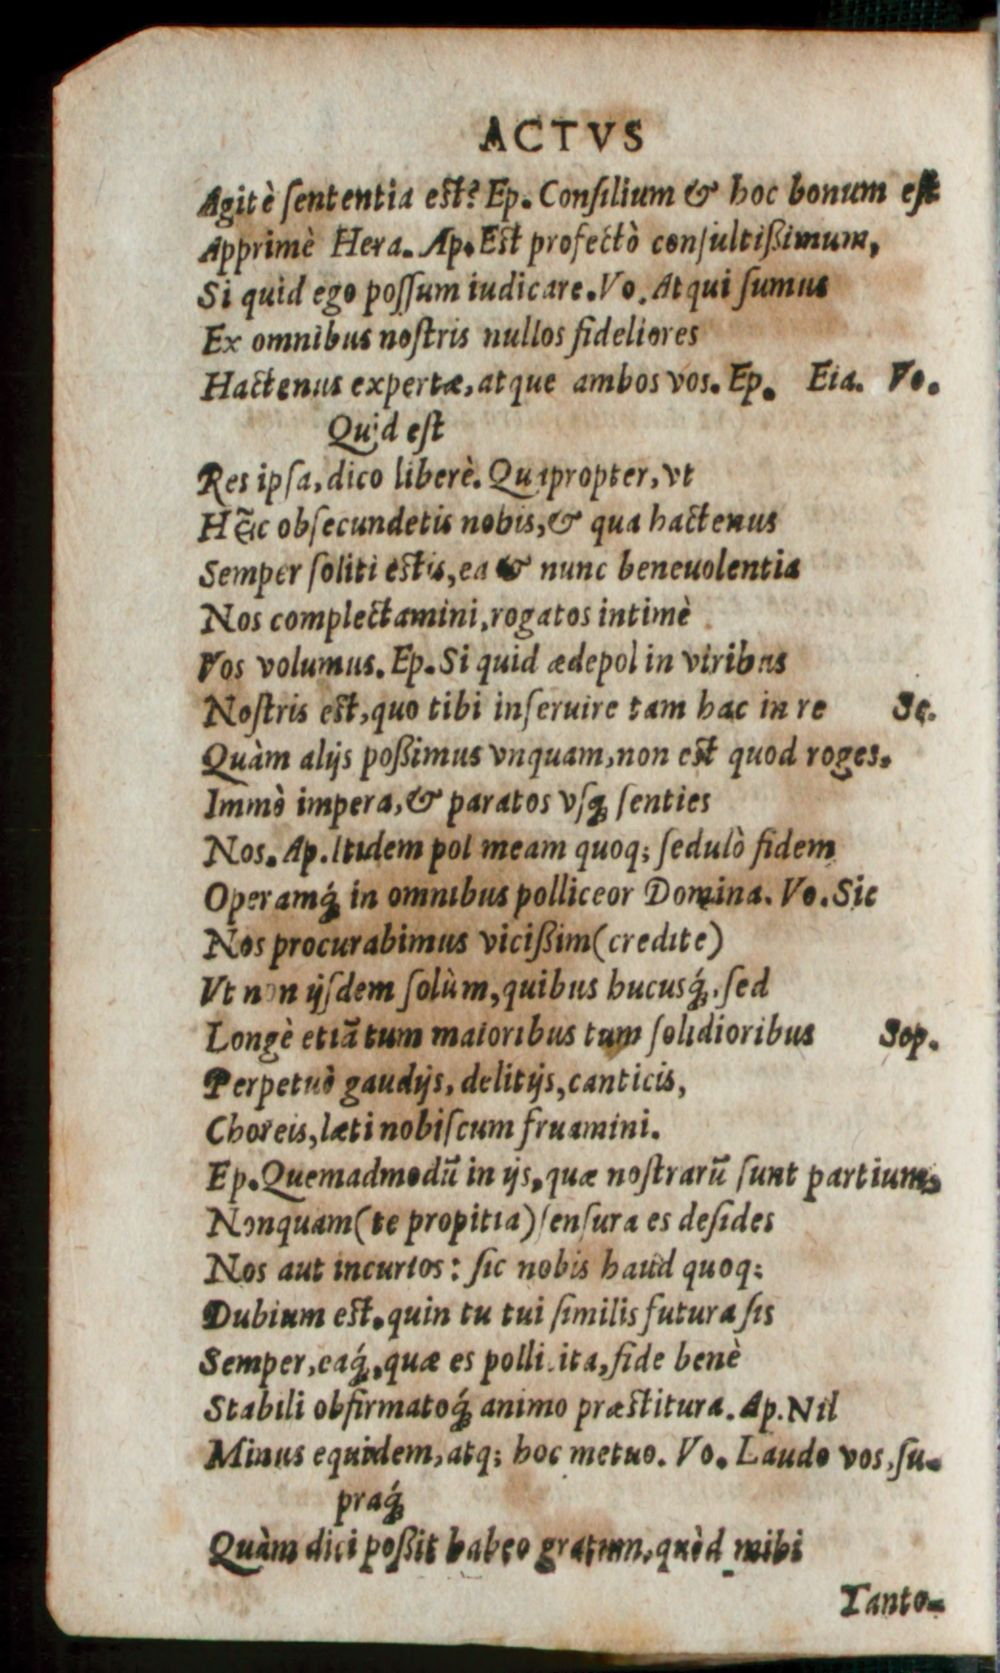 ACTVS
Agitè ſententia eſt? Ep. Conſilium & hoc bonum eſt
Apprimè Hera. Ap. Eſt profectò conſultißimum,
Si quid ego poſſum iudicare. Vo. Atqui ſumus
Ex omnibus noſtris nullos fideliores
Hactenus expertæ, atque ambos vos. Ep. Eia. Vo.
Quid eſt
Res ipſa, dico liberè. Quapropter, vt
Hãc obſecundetis nobis, & qua hactenus
Semper ſoliti eſtis, ea & nunc beneuolentia
Nos complectamini, rogatos intimè
Vos volumus. Ep. Si quid ædepol in viribus
Noſtris eſt, quo tibi inſeruire tam hac in re Sc.
Quàm alijs poßimus vnquam, non eſt quod roges.
Immò impera, & paratos vſq; ſenties
Nos. Ap. Itidem pol meam quoq; ſedulò fidem
Operamq́; in omnibus polliceor Domina. Vo. Sic
Nos procurabimus vicißim (credite)
Vt non ijſdem ſolùm, quibus hucusq́;, ſed
Longè etiã tum maioribus tum ſolidioribus Sop.
Perpetuò gaudijs, delitijs, canticis,
Choreis, læti nobiſcum fruamini.
Ep. Quemadmodũ in ijs, quæ noſtrarũ ſunt partium,
Nonquam (te propitia) ſenſura es deſides
Nos aut incurios: ſic nobis haud quoq;
Dubium eſt, quin tu tui ſimilis futura ſis
Semper, eaq́;, quæ es pollicita, fide benè
Stabili obfirmatoq́; animo præſtitura. Ap. Nil
Minus equidem, atq; hoc metuo. Vo. Laudo vos, ſu-
praq́;
Quàm dici poßit habeo gratum, quòd mihi
Tanto-